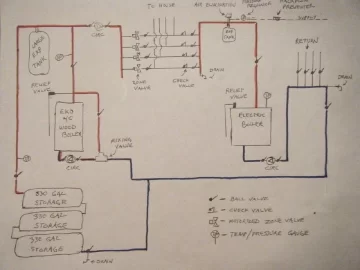 TO HOUSE
AIR ELIMINATOR
SUPPLY
LARGE EXP TANK
CIRC
EXP TANK
RETURN
ZONE VALVE
CHECK VALVE
DRAIN
DRAIN
RELIEF VALVE
RELIEF VALVE
WOOD BOILER
ELECTRIC BOILER
MIXING VALVE
CIRC
CIRC
330 GAL STORAGE
330 GAL STORAGE
330 GAL STORAGE
DRAIN
- BALL VALVE
- CHECK VALVE
- ZONE VALVE
- TEMP/PRESSURE GAUGE